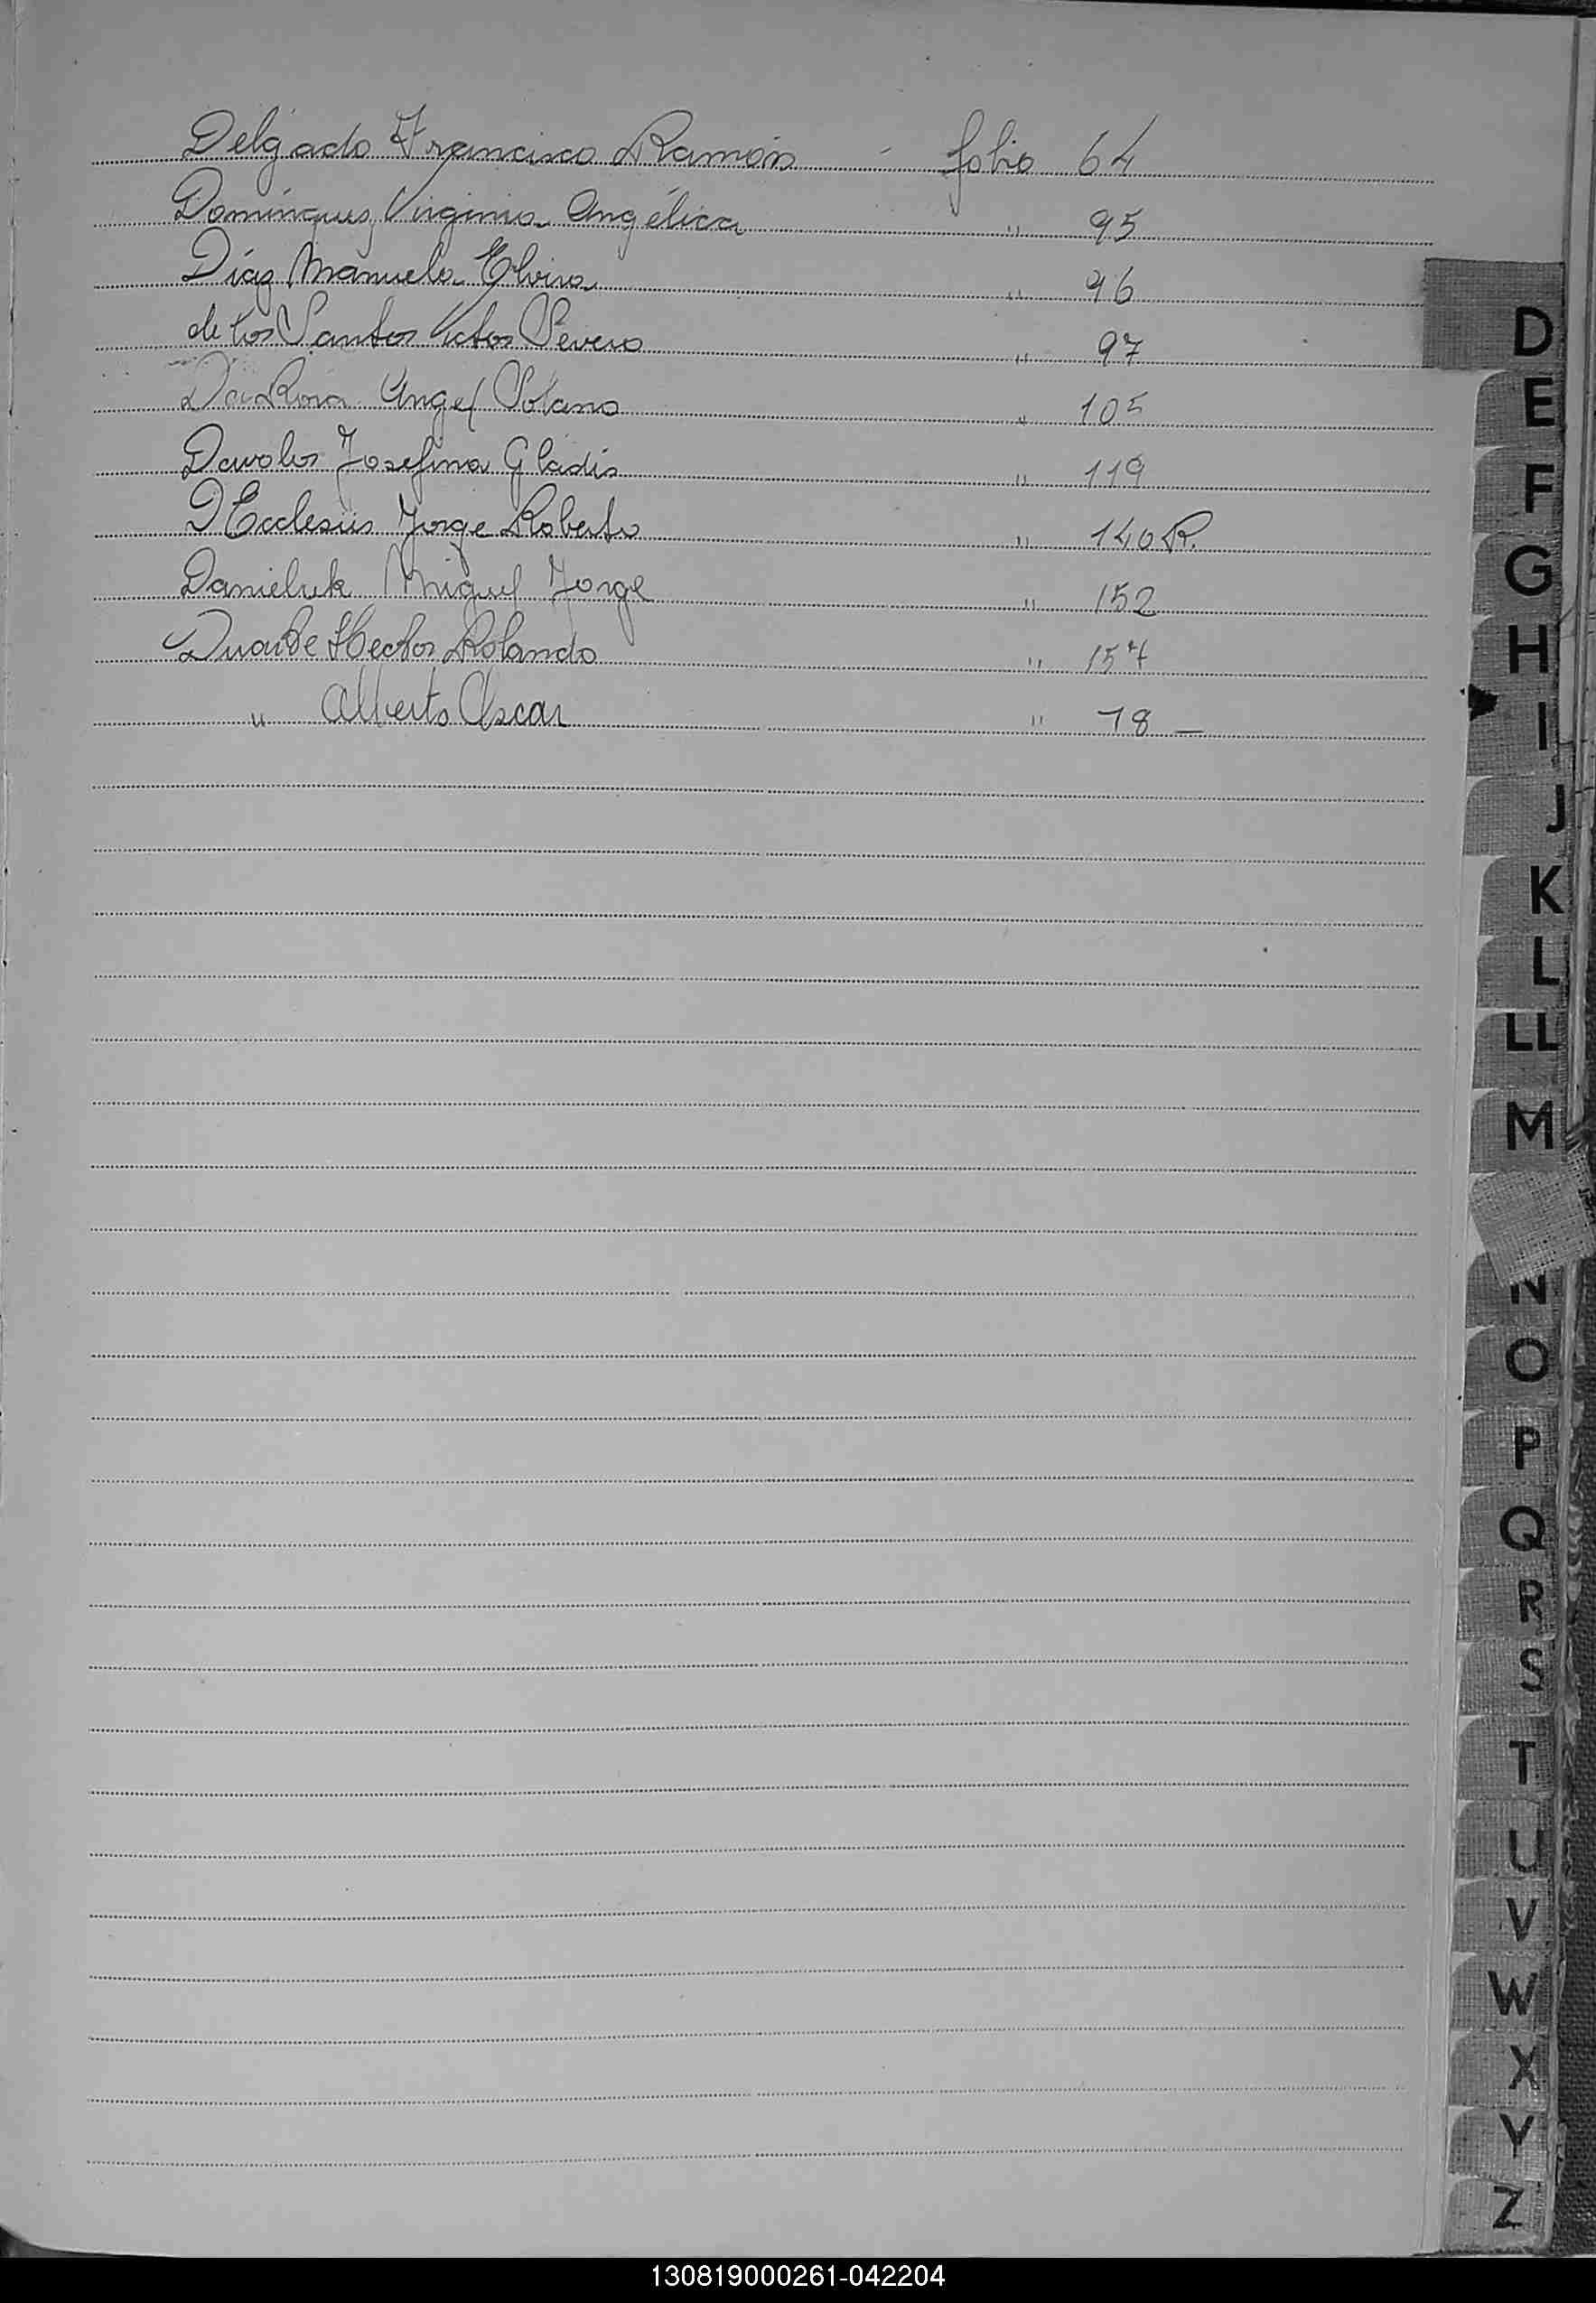 Delgado Francisco Ramón - folio 64
Domíngues, Virginia Angélica " 95
Díaz Manuela Elvira " 96
de los Santos Victor Severo " 97
Da Rosa Angel Solano " 105
Davalos Josefina Gladis " 119
D Ecclesiis Jorge Roberto " 140 R.
Danieluk Miguel Jorge " 152
Duarte Hector Rolando " 157
" Alberto Oscar " 78 —
D
E
F
G
H
I
J
K
L
LL
M
N
O
P
Q
R
S
T
U
V
W
X
Y
Z
130819000261-042204